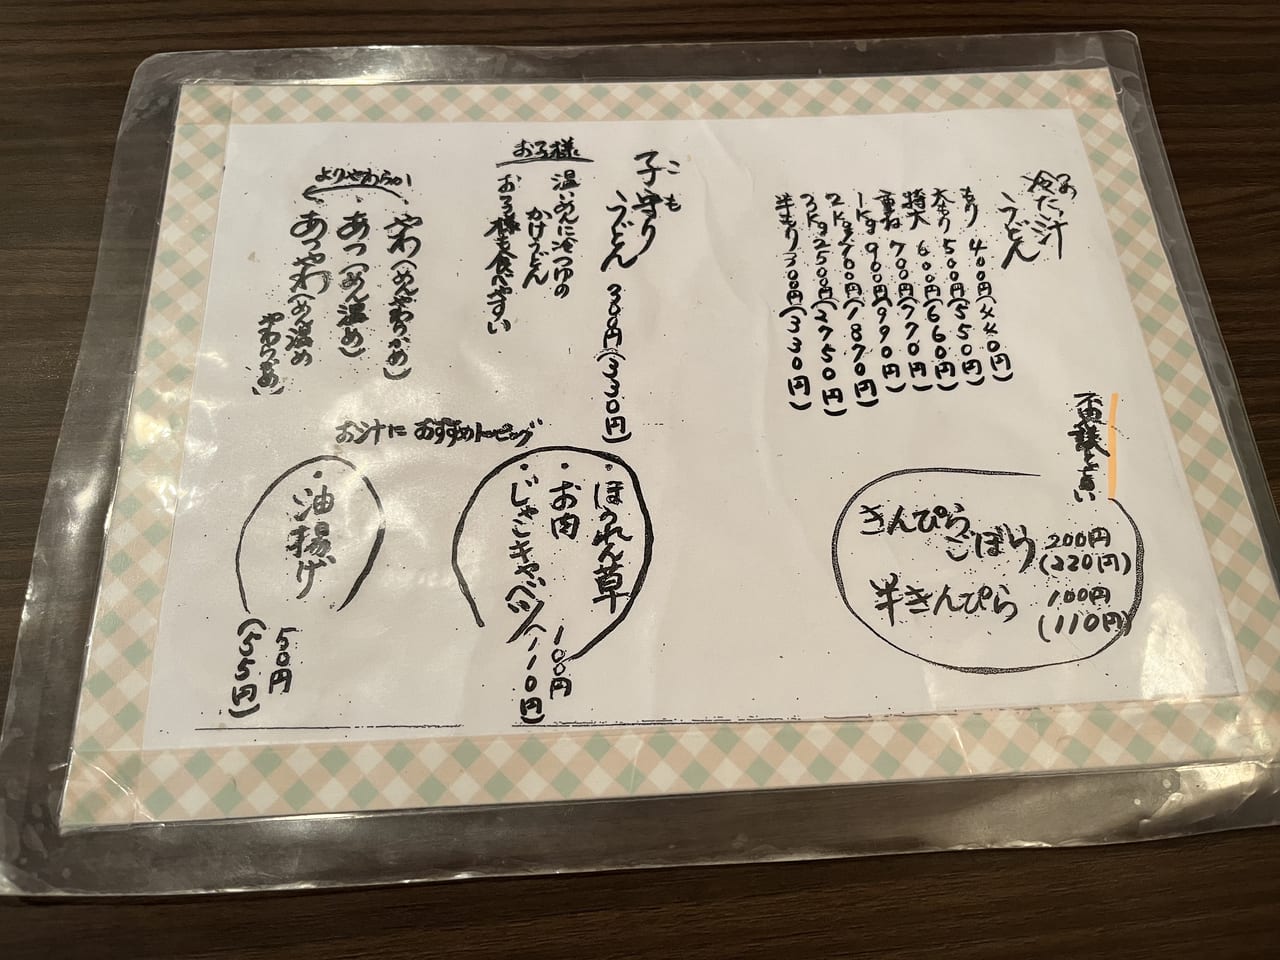 冷たい汁
うどん
もり 400円(440円)
大もり 500円(550円)
特大 600円(660円)
重ね 700円(770円)
1Kg 900円(990円)
2Kg 1700円(1870円)
3Kg 2500円(2750円)
半もり 300円(330円)
きんぴら
ごぼう 200円
(220円)
半きんぴら 100円
(110円)
子守り
こも
うどん 300円(330円)
お子様
温いめんに冷つゆの
かけうどん
お子様も食べやすい
よりやわらか
やわ(めんやわらかめ)
あつ(めん温め)
あつやわ(めん温め
やわらかめ)
お汁に おすすめトッピング
・ほうれん草
・お肉
・じゃこキャベツ
100円
(110円)
・油揚げ
50円
(55円)